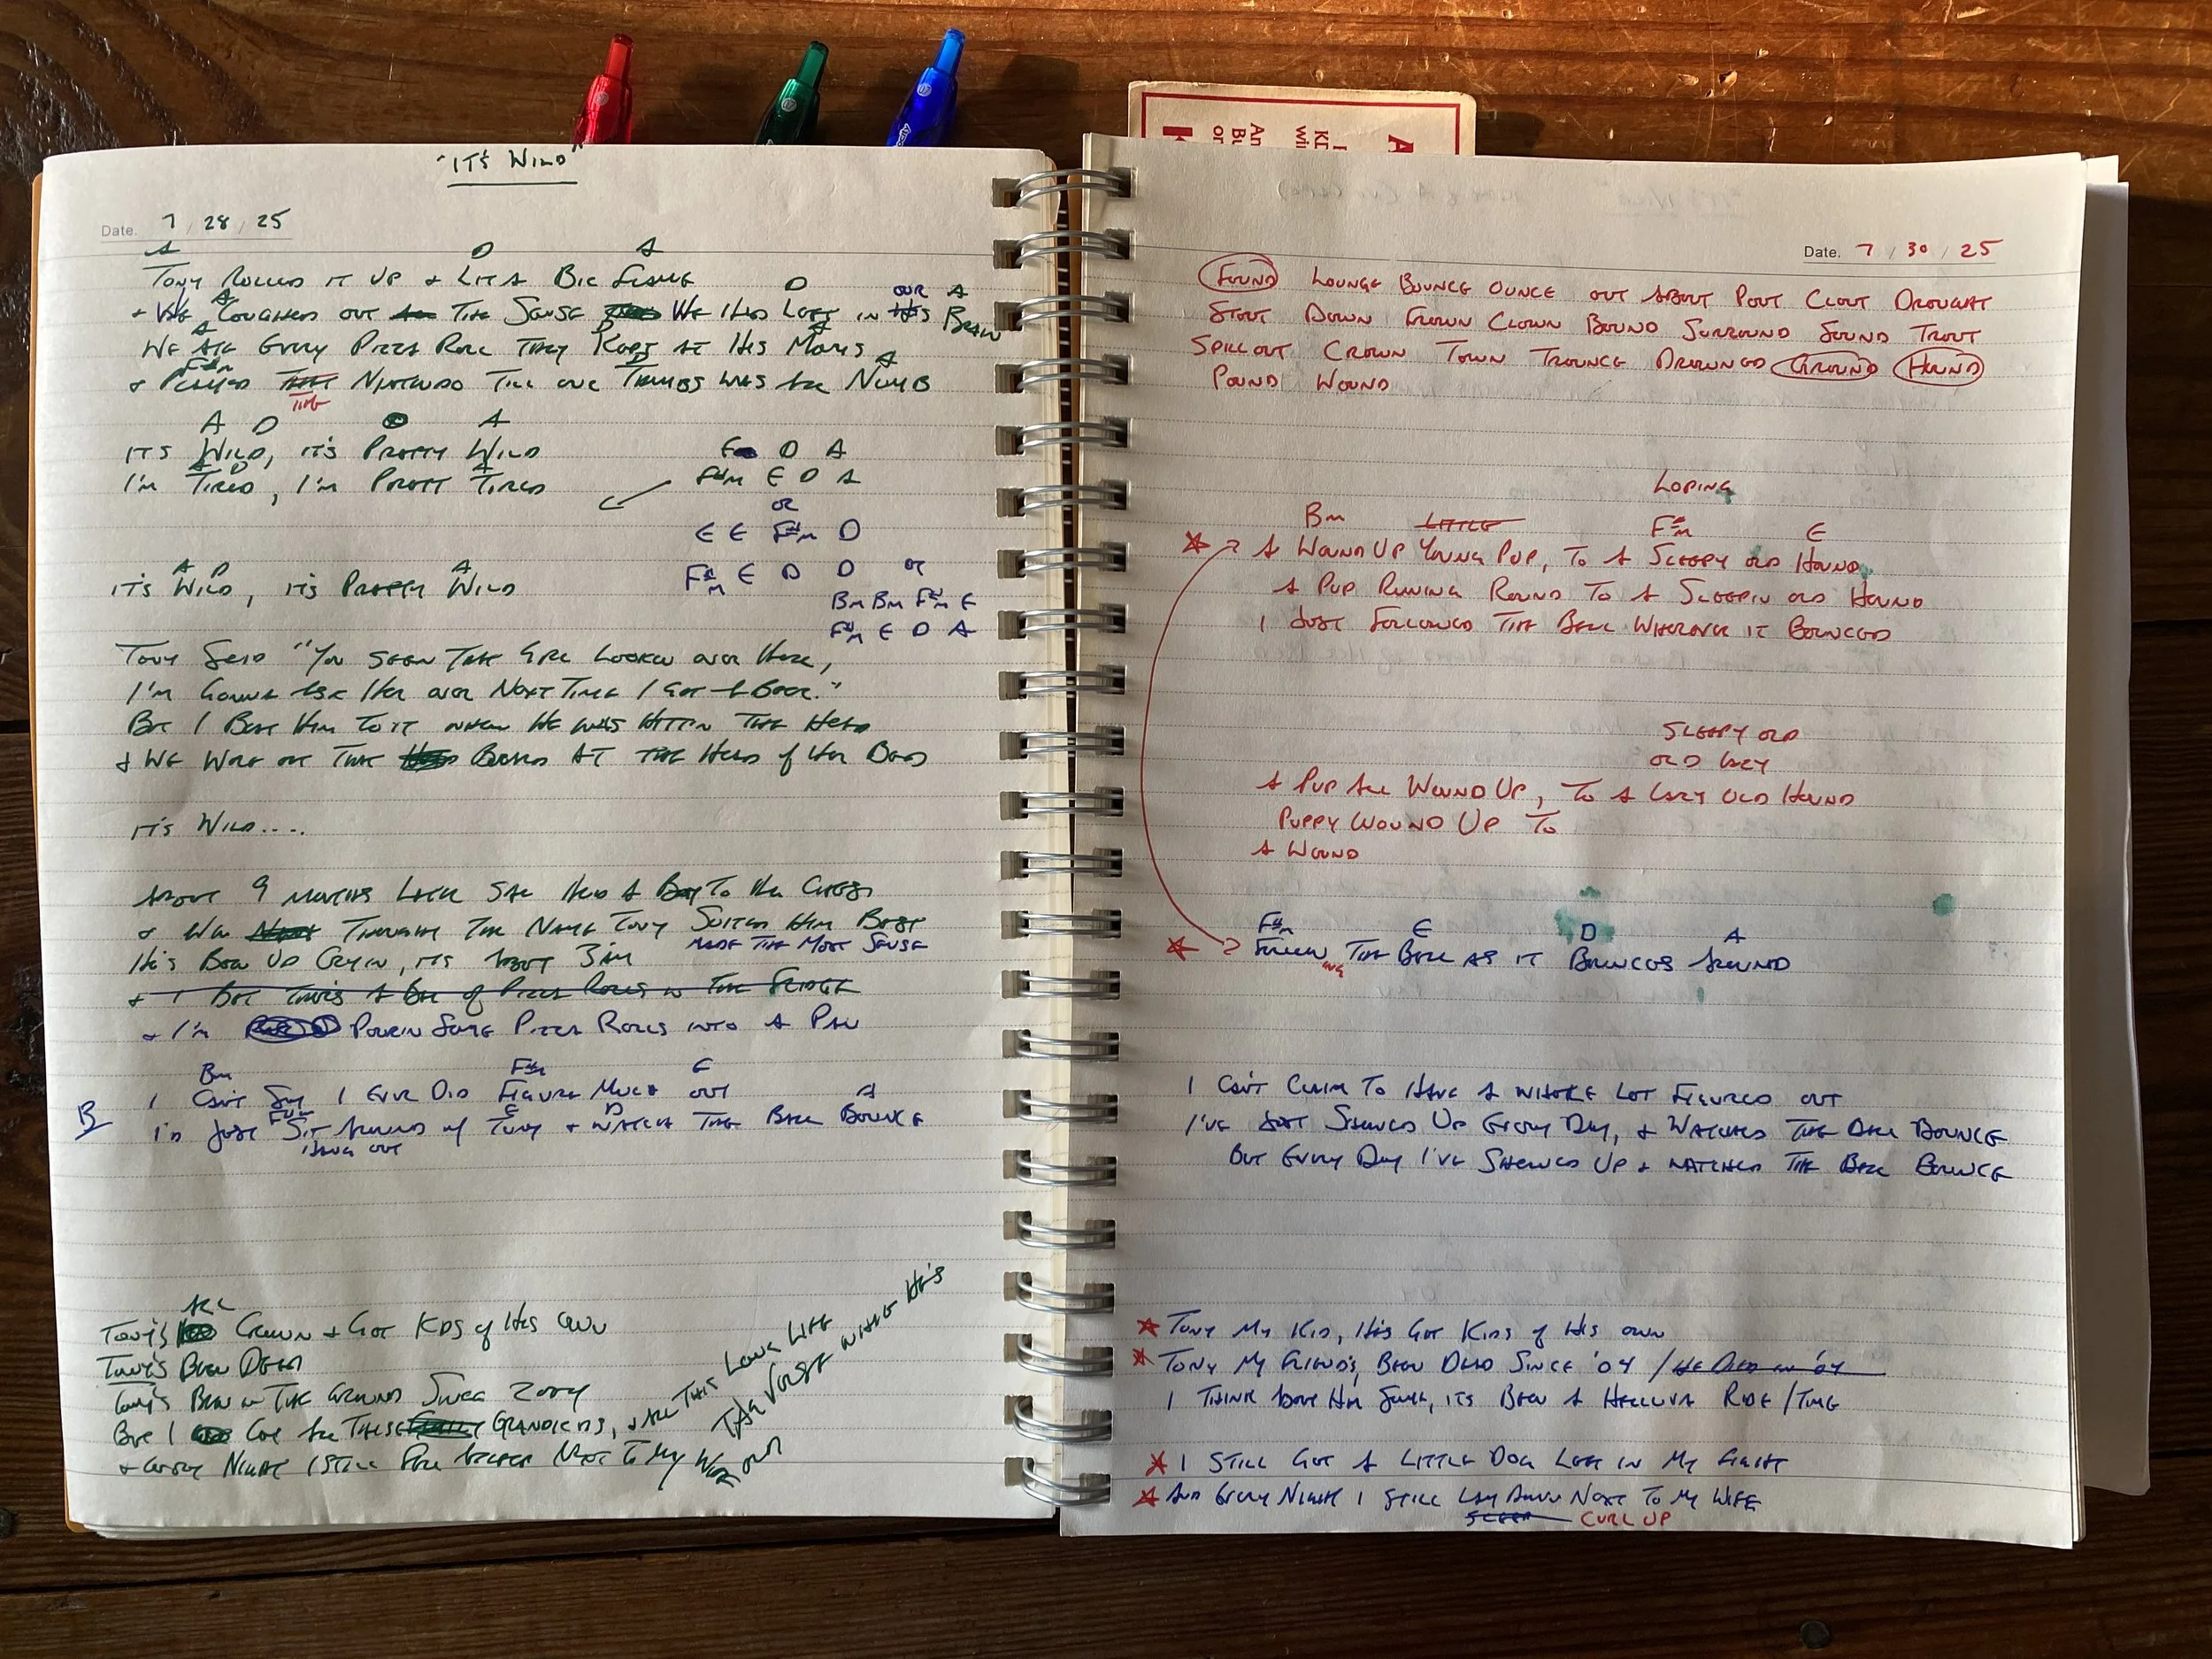 "IT'S WILD"
Date. 7 / 28 / 25
A D A
TONY ROLLED IT UP + LIT A BIG FLAME
A D OUR A
+ WE COUGHED OUT THE SENSE WE HAD LEFT IN HIS BRAIN
A D A
WE ATE EVERY PIZZA ROLL THEY KEPT AT HIS MOM'S
F#m A
+ PLAYED THAT NINTENDO TILL OUR THUMBS WAS ALL NUMB
THE
A D A
IT'S WILD, IT'S PRETTY WILD
A D A
I'M TIRED, I'M PRETT TIRED
E D A
F#m E D A
OR
E E F#m D
F#m E D D OR
Bm Bm F#m E
F#m E D A
A D A
IT'S WILD, IT'S PRETTY WILD
TONY SAID "YOU SEEN THAT GIRL LOOKIN OVER HERE,
I'M GONNA ASK HER OVER NEXT TIME I GET A BEER."
BUT I BEAT HIM TO IT WHEN HE WAS HITTIN THE HEAD
+ WE WORE OUT THE BOARD AT THE HEAD OF HER BED
IT'S WILD....
ABOUT 9 MONTHS LATER SHE HELD A BOY TO HER CHEST
+ WE THOUGHT THE NAME TONY SUITED HIM BEST
MADE THE MOST SENSE
HE'S BEEN UP CRYIN, IT'S ABOUT 3AM
+ I BET THERE'S A BAG OF PIZZA ROLLS IN THE FRIDGE
+ I'M POURIN SOME PIZZA ROLLS INTO A PAN
Bm F#m E
I CAN'T SAY I EVER DID FIGURE MUCH OUT
F#m E D A
B I'D JUST SIT AROUND W/ TONY + WATCH THE BALL BOUNCE
HANG OUT
ALL
TONY'S GROWN + GOT KIDS OF HIS OWN
TONY'S BEEN DEAD
TONY'S BEEN IN THE GROUND SINCE 2004
BUT I GOT ALL THESE GRANDKIDS, + ALL THIS LOVE LIFE
+ EVERY NIGHT I STILL FALL ASLEEP NEXT TO MY WIFE
THE VERSE WHERE HE'S
OR OUR
Date. 7 / 30 / 25
FOUND LOUNGE BOUNCE OUNCE OUT ABOUT POUT CLOUT DROUGHT
STOUT DOWN FROWN CLOWN BOUND SURROUND SOUND TROUT
SPILL OUT CROWN TOWN TROUNCE DROWNED GROUND HOUND
POUND WOUND
LOPING
Bm LITTLE F#m E
A WOUND UP YOUNG PUP, TO A SLEEPY OLD HOUND
A PUP RUNING ROUND TO A SLEEPIN OLD HOUND
I JUST FOLLOWED THE BALL WHEREVER IT BOUNCED
SLEEPY OLD
OLD LAZY
A PUP ALL WOUND UP, TO A LAZY OLD HOUND
PUPPY WOUND UP TO
A WOUND
F#m E D A
FOLLOW THE BALL AS IT BOUNCES AROUND
ING
I CAN'T CLAIM TO HAVE A WHOLE LOT FIGURED OUT
I'VE JUST SHOWED UP EVERY DAY, + WATCHED THE BALL BOUNCE
BUT EVERY DAY I'VE SHOWED UP + WATCHED THE BALL BOUNCE
TONY MY KID, HE'S GOT KIDS OF HIS OWN
TONY MY FRIEND'S, BEEN DEAD SINCE '04 / HE DIED IN '04
I THINK ABOUT HIM SOME, IT'S BEEN A HELLUVA RIDE / TIME
I STILL GOT A LITTLE DOG LEFT IN MY FIGHT
AND EVERY NIGHT I STILL LAY DOWN NEXT TO MY WIFE
SLEEP CURL UP